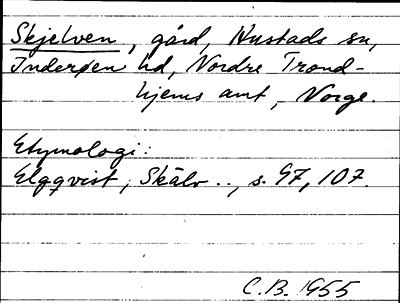 Skjelven, gård, Hustads sn,
Inderøen hd, Nordre Trond-
hjems amt, Norge.
Etymologi:
Elgqvist, Skälv .., s. 97, 107.
C.B. 1955